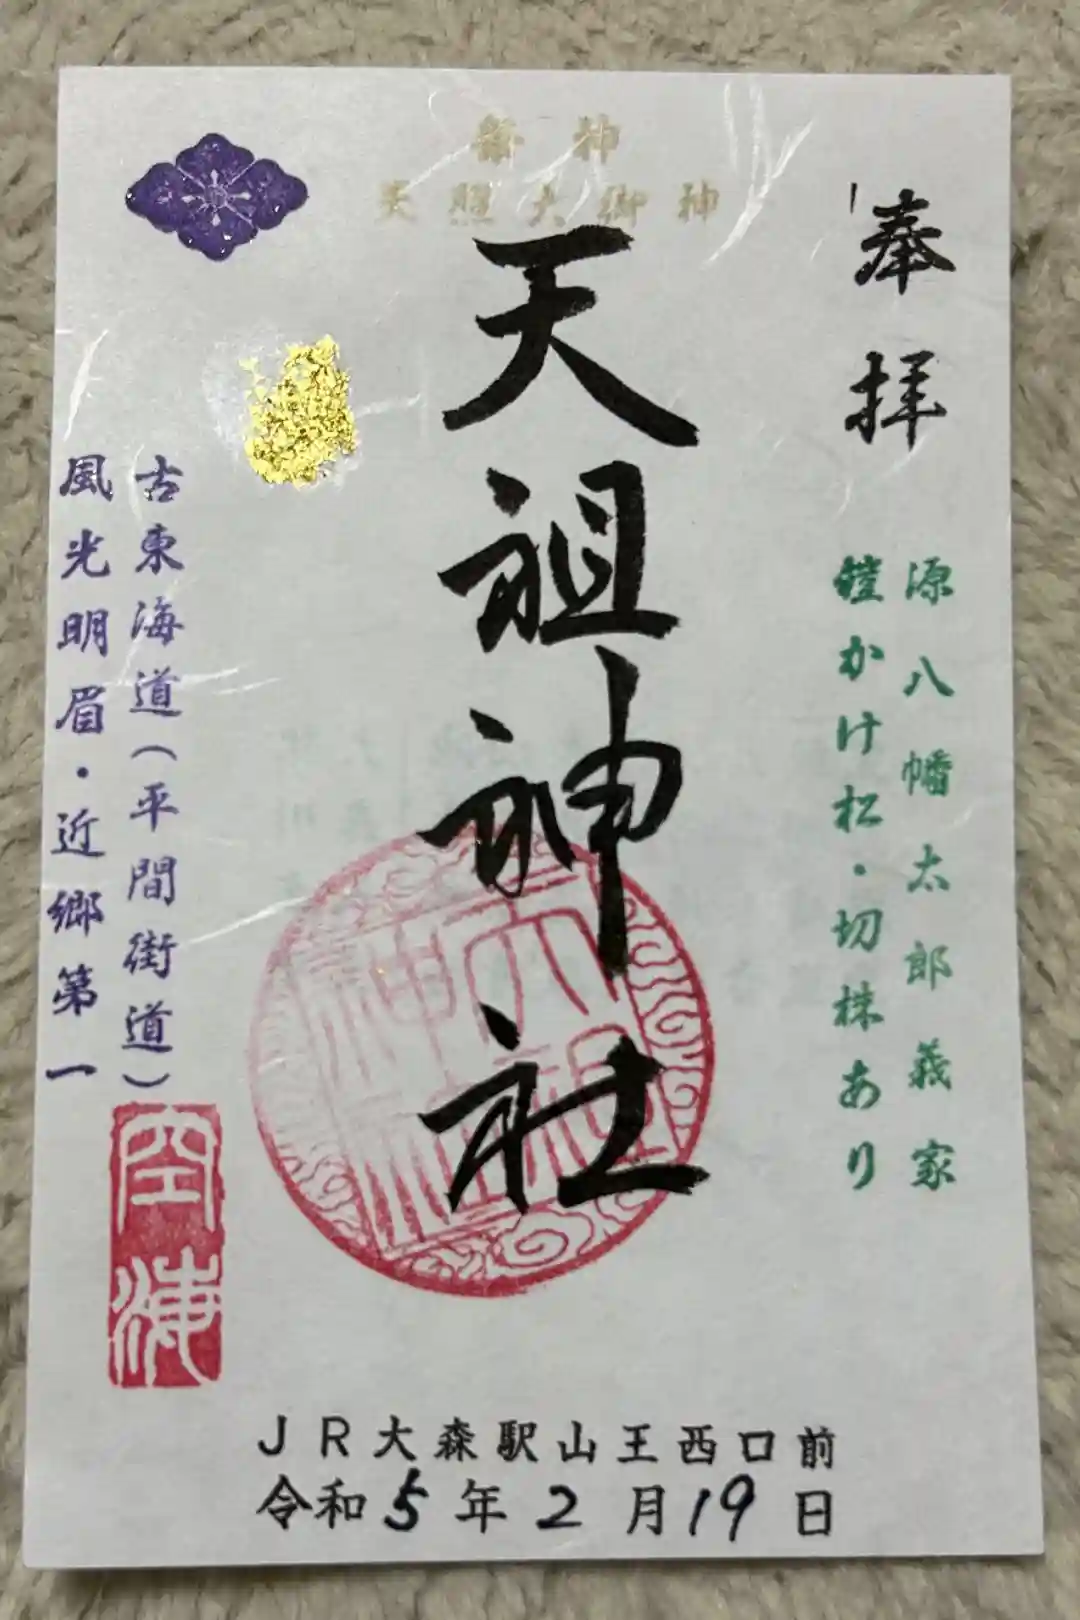 祭神
天照大御神
奉拝
源八幡太郎義家
鎧かけ松・切株あり
天祖神社
天祖神社
古東海道(平間街道)
風光明眉・近郷第一
空海
JR大森駅山王西口前
令和5年2月19日